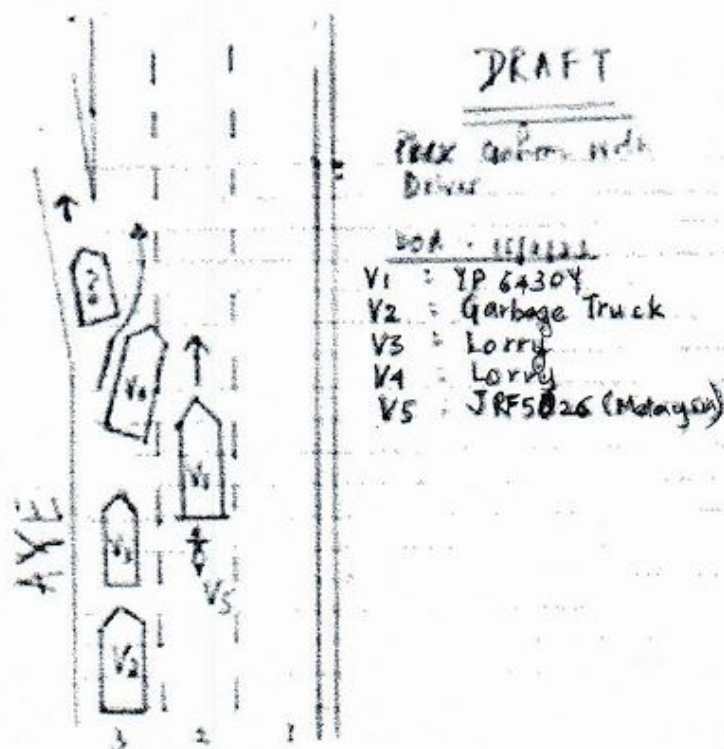 DRAFT
Driver
V1 : YP 6430Y
V2 : Garbage Truck
V3 : Lorry
V4 : Lorry
V5 : JRF5026 (Malaysia)
??
V4
V1
V3
V5
V2
AYE
3 2 1